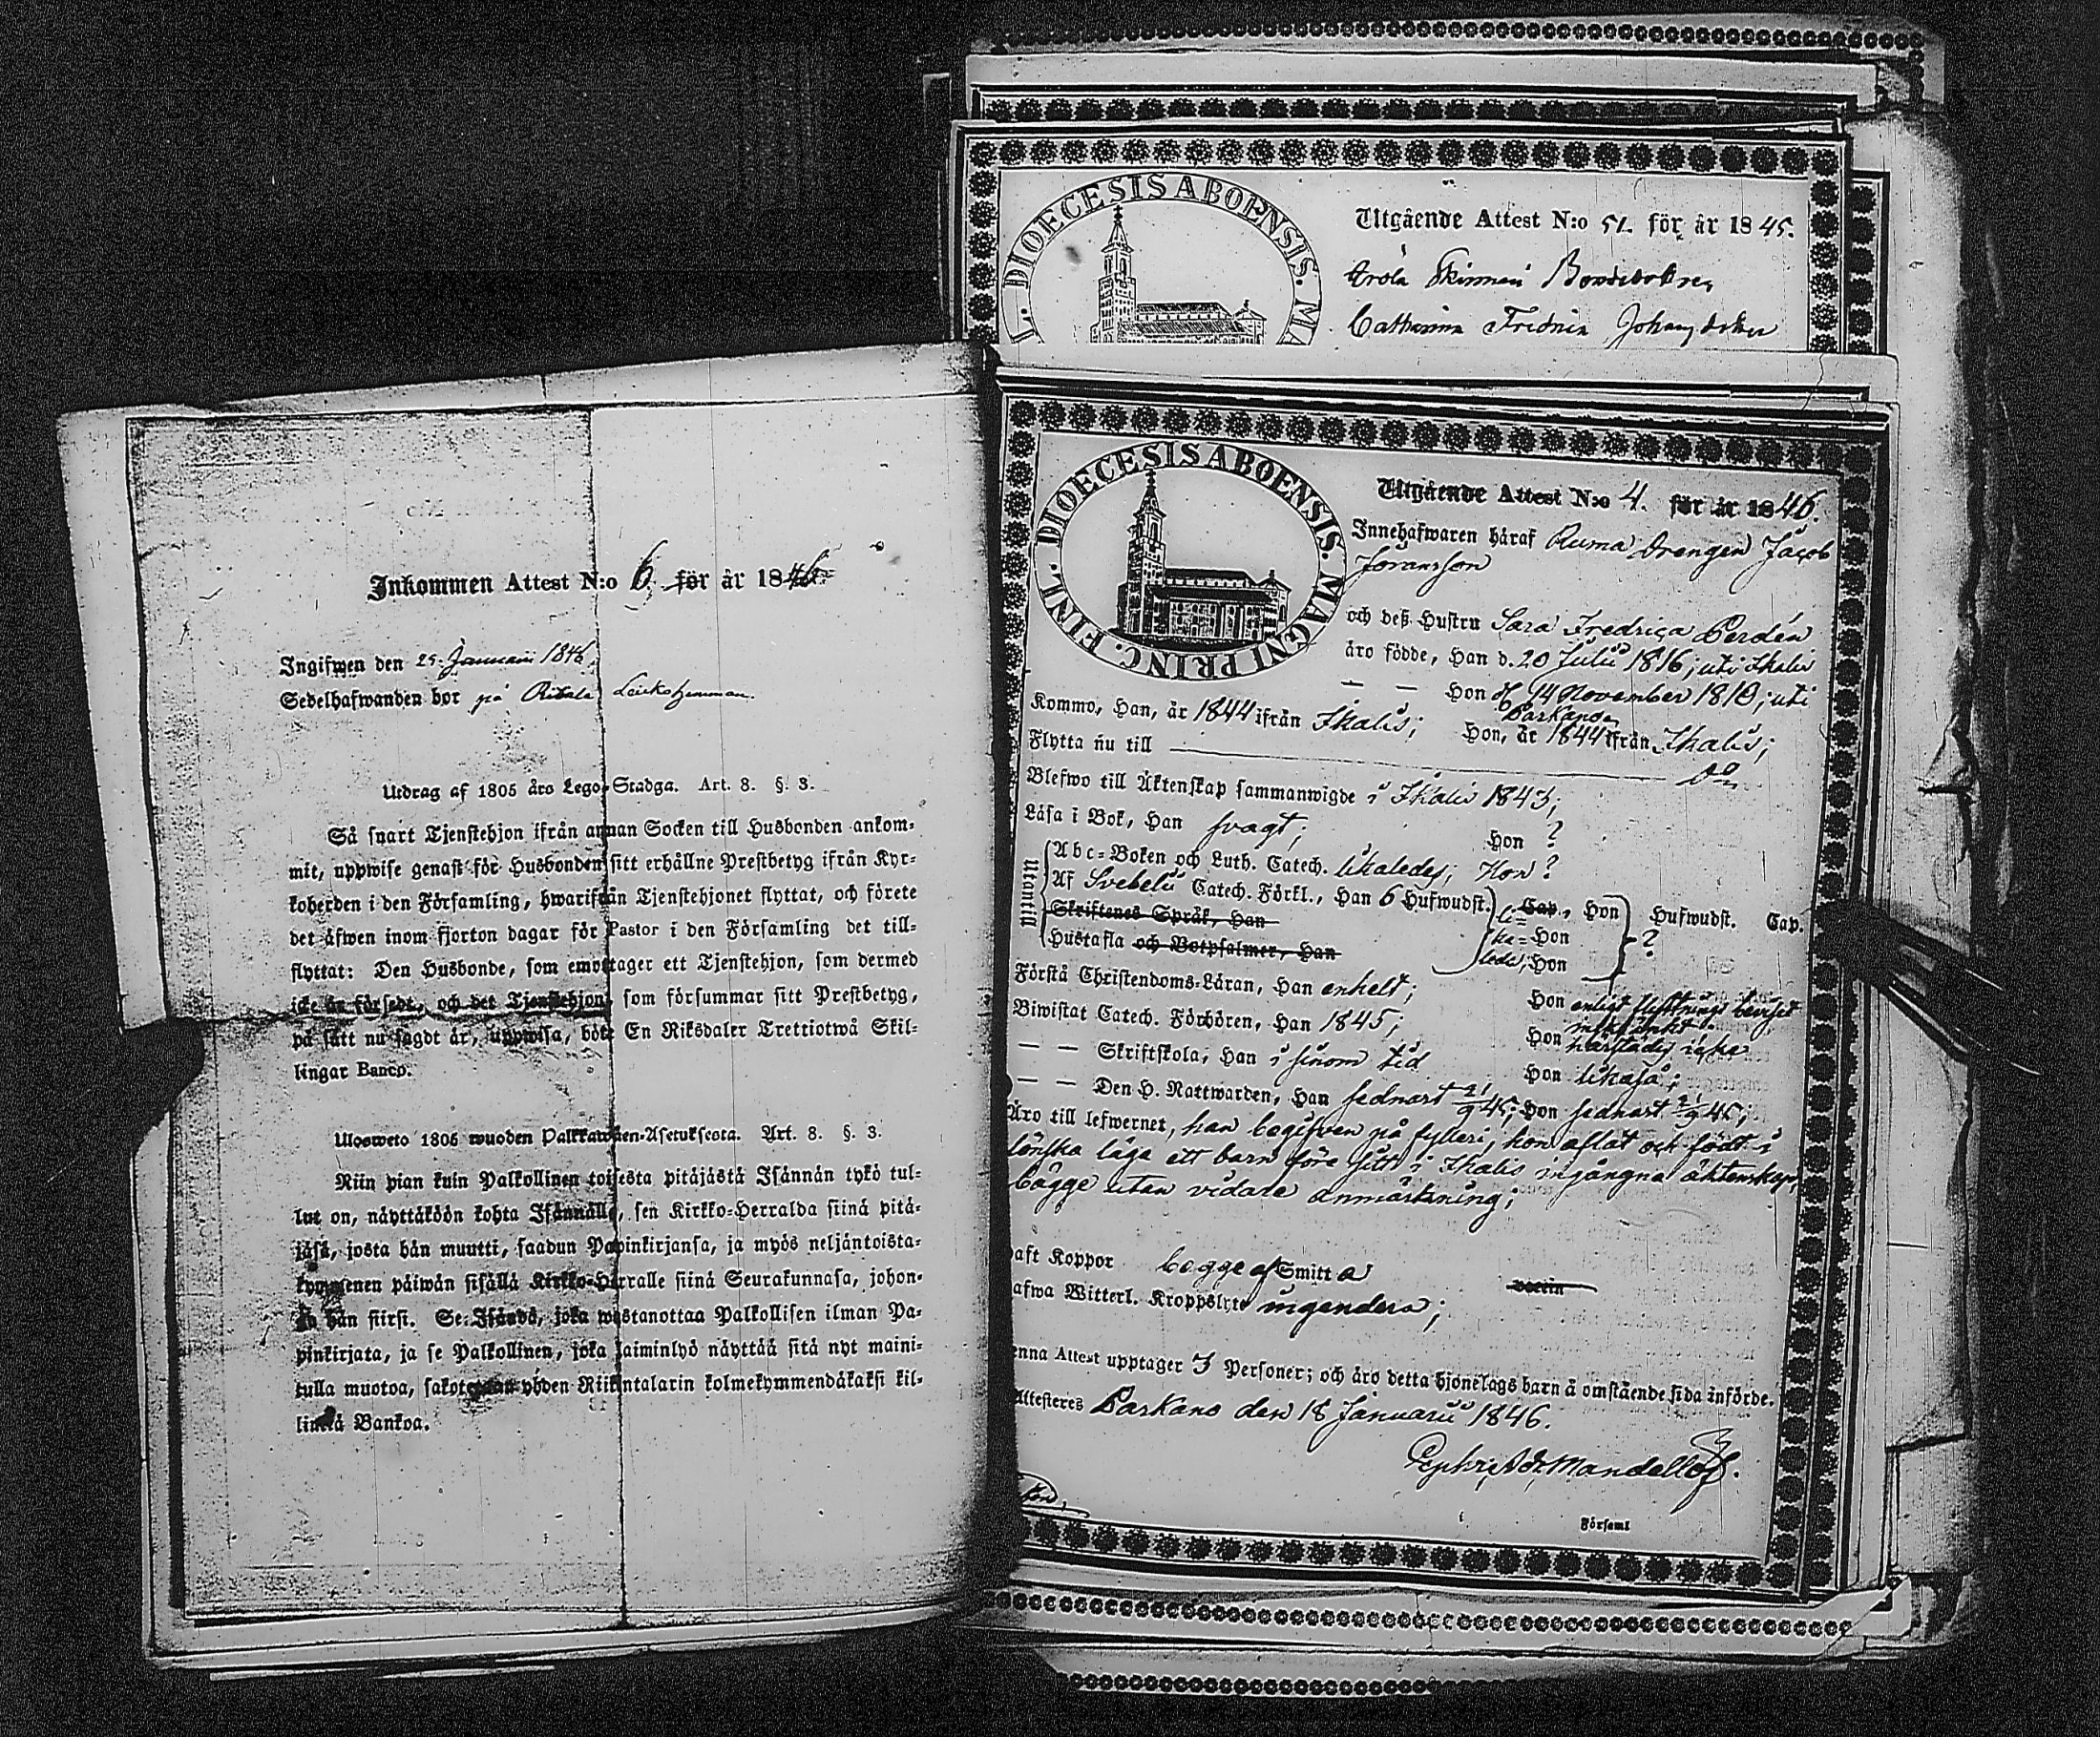 Inkommen Attest N:o 6. för år 1846.
Ingifwen den 25. Januarii 1846.
Sedelhafwanden bor på Leuko hemman.
Utdrag af 1805 års Lego-Stadga. Art. 8. §. 3.
Så snart Tjenstehjon ifrån annan Socken till Husbonden ankom-
mit, uppwise genast för Husbonden sitt erhållne Prestbetyg ifrån Kyr-
koherden i den Församling, hwarifrån Tjenstehjonet flyttat, och förete
det äfwen inom fjorton dagar för Pastor i den Församling det till-
flyttat: Den Husbonde, som emottager ett Tjenstehjon, som dermed
icke är försedt, och det Tjenstehjon, som försummar sitt Prestbetyg,
på sätt nu sagdt är, uppwisa, böte En Riksdaler Trettiotwå Skil-
lingar Banco.
Ulosweto 1805 wuoden Palkkawäen-Asetuksesta. Art. 8. §. 3.
Niin pian kuin Palkollinen toisesta pitäjästä Isännän tykö tul-
lut on, näyttäköön kohta Isännälle, sen Kirkko-Herralda siinä pitä-
jäsä, josta hän muutti, saadun Papinkirjansa, ja myös neljäntoista-
kymmenen päiwän sisällä Kirkko-Herralle siinä Seurakunnasa, johon-
ka hän siirsi. Se Isäntä, joka wastanottaa Palkollisen ilman Pa-
pinkirjata, ja se Palkollinen, joka laiminlyö näyttää sitä nyt maini-
tulla muotoa, sakotetaan yhden Riikintalarin kolmekymmendäkaksi kil-
lingiä Bankoa.
L. DIOECESIS ABOENSIS. MA
Utgående Attest N:o 51. för år 1845.
Bondedotren
Catharina Fredrica Johansdotter
DIOECESIS ABOENSIS. MAGNI PRINC. FINL.
Utgående Attest N:o 4. för år 1846.
Innehafwaren häraf Ruma Drengen Jacob
Göransson
och deß Hustru Sara Fredrica Perdén
äro födde, Han d. 20 Julii 1816; uti Ikalis
— — Hon d. 14 November 1818; uti
Parkano
Kommo, Han, år 1844 ifrån Ikalis; Hon, år 1844 ifrån Ikalis;
Flytta nu till — Do
Blefwo till Äktenskap sammanwigde i Ikalis 1843;
Läsa i Bok, Han svagt; Hon ?
Utantill
Abc-Boken och Luth. Catech. likaledes; Hon ?
Af Svebelii Catech. Förkl., Han 6 Hufwudst. Cap., Hon Hufwudst. Cap.
Skriftenes Språk, Han lika- Hon ?
Hustafla och Botpsalmer, Han ledes; Hon
Förstå Christendoms-Läran, Han enkelt; Hon enligt flyttnings beviset
inskränkt
Biwistat Catech. Förhören, Han 1845; Hon härstädes icke
— — Skriftskola, Han i sinom tid Hon likaså;
— — Den H. Nattwarden, Han sednast 21/9 45; Hon sednast 21/9 45;
Äro till lefwernet, han begifven på fylleri, hon aflat och födt i
lönska läge ett barn före sitt i Ikalis ingångna äktenskap,
bägge utan vidare anmärkning;
aft Koppor bägge af Smitta
afwa Witterl. Kroppslyte ingendera;
enna Attest upptager 3 Personer; och äro detta hjonelags barn å omstående sida införde.
Attesteres Parkano den 18 Januarii 1846.
Mandellöf.
Församl